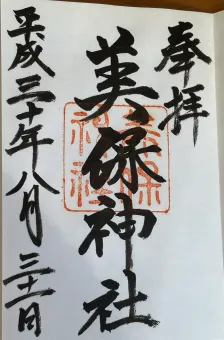 奉拝
美保神社
平成三十年八月三十一日